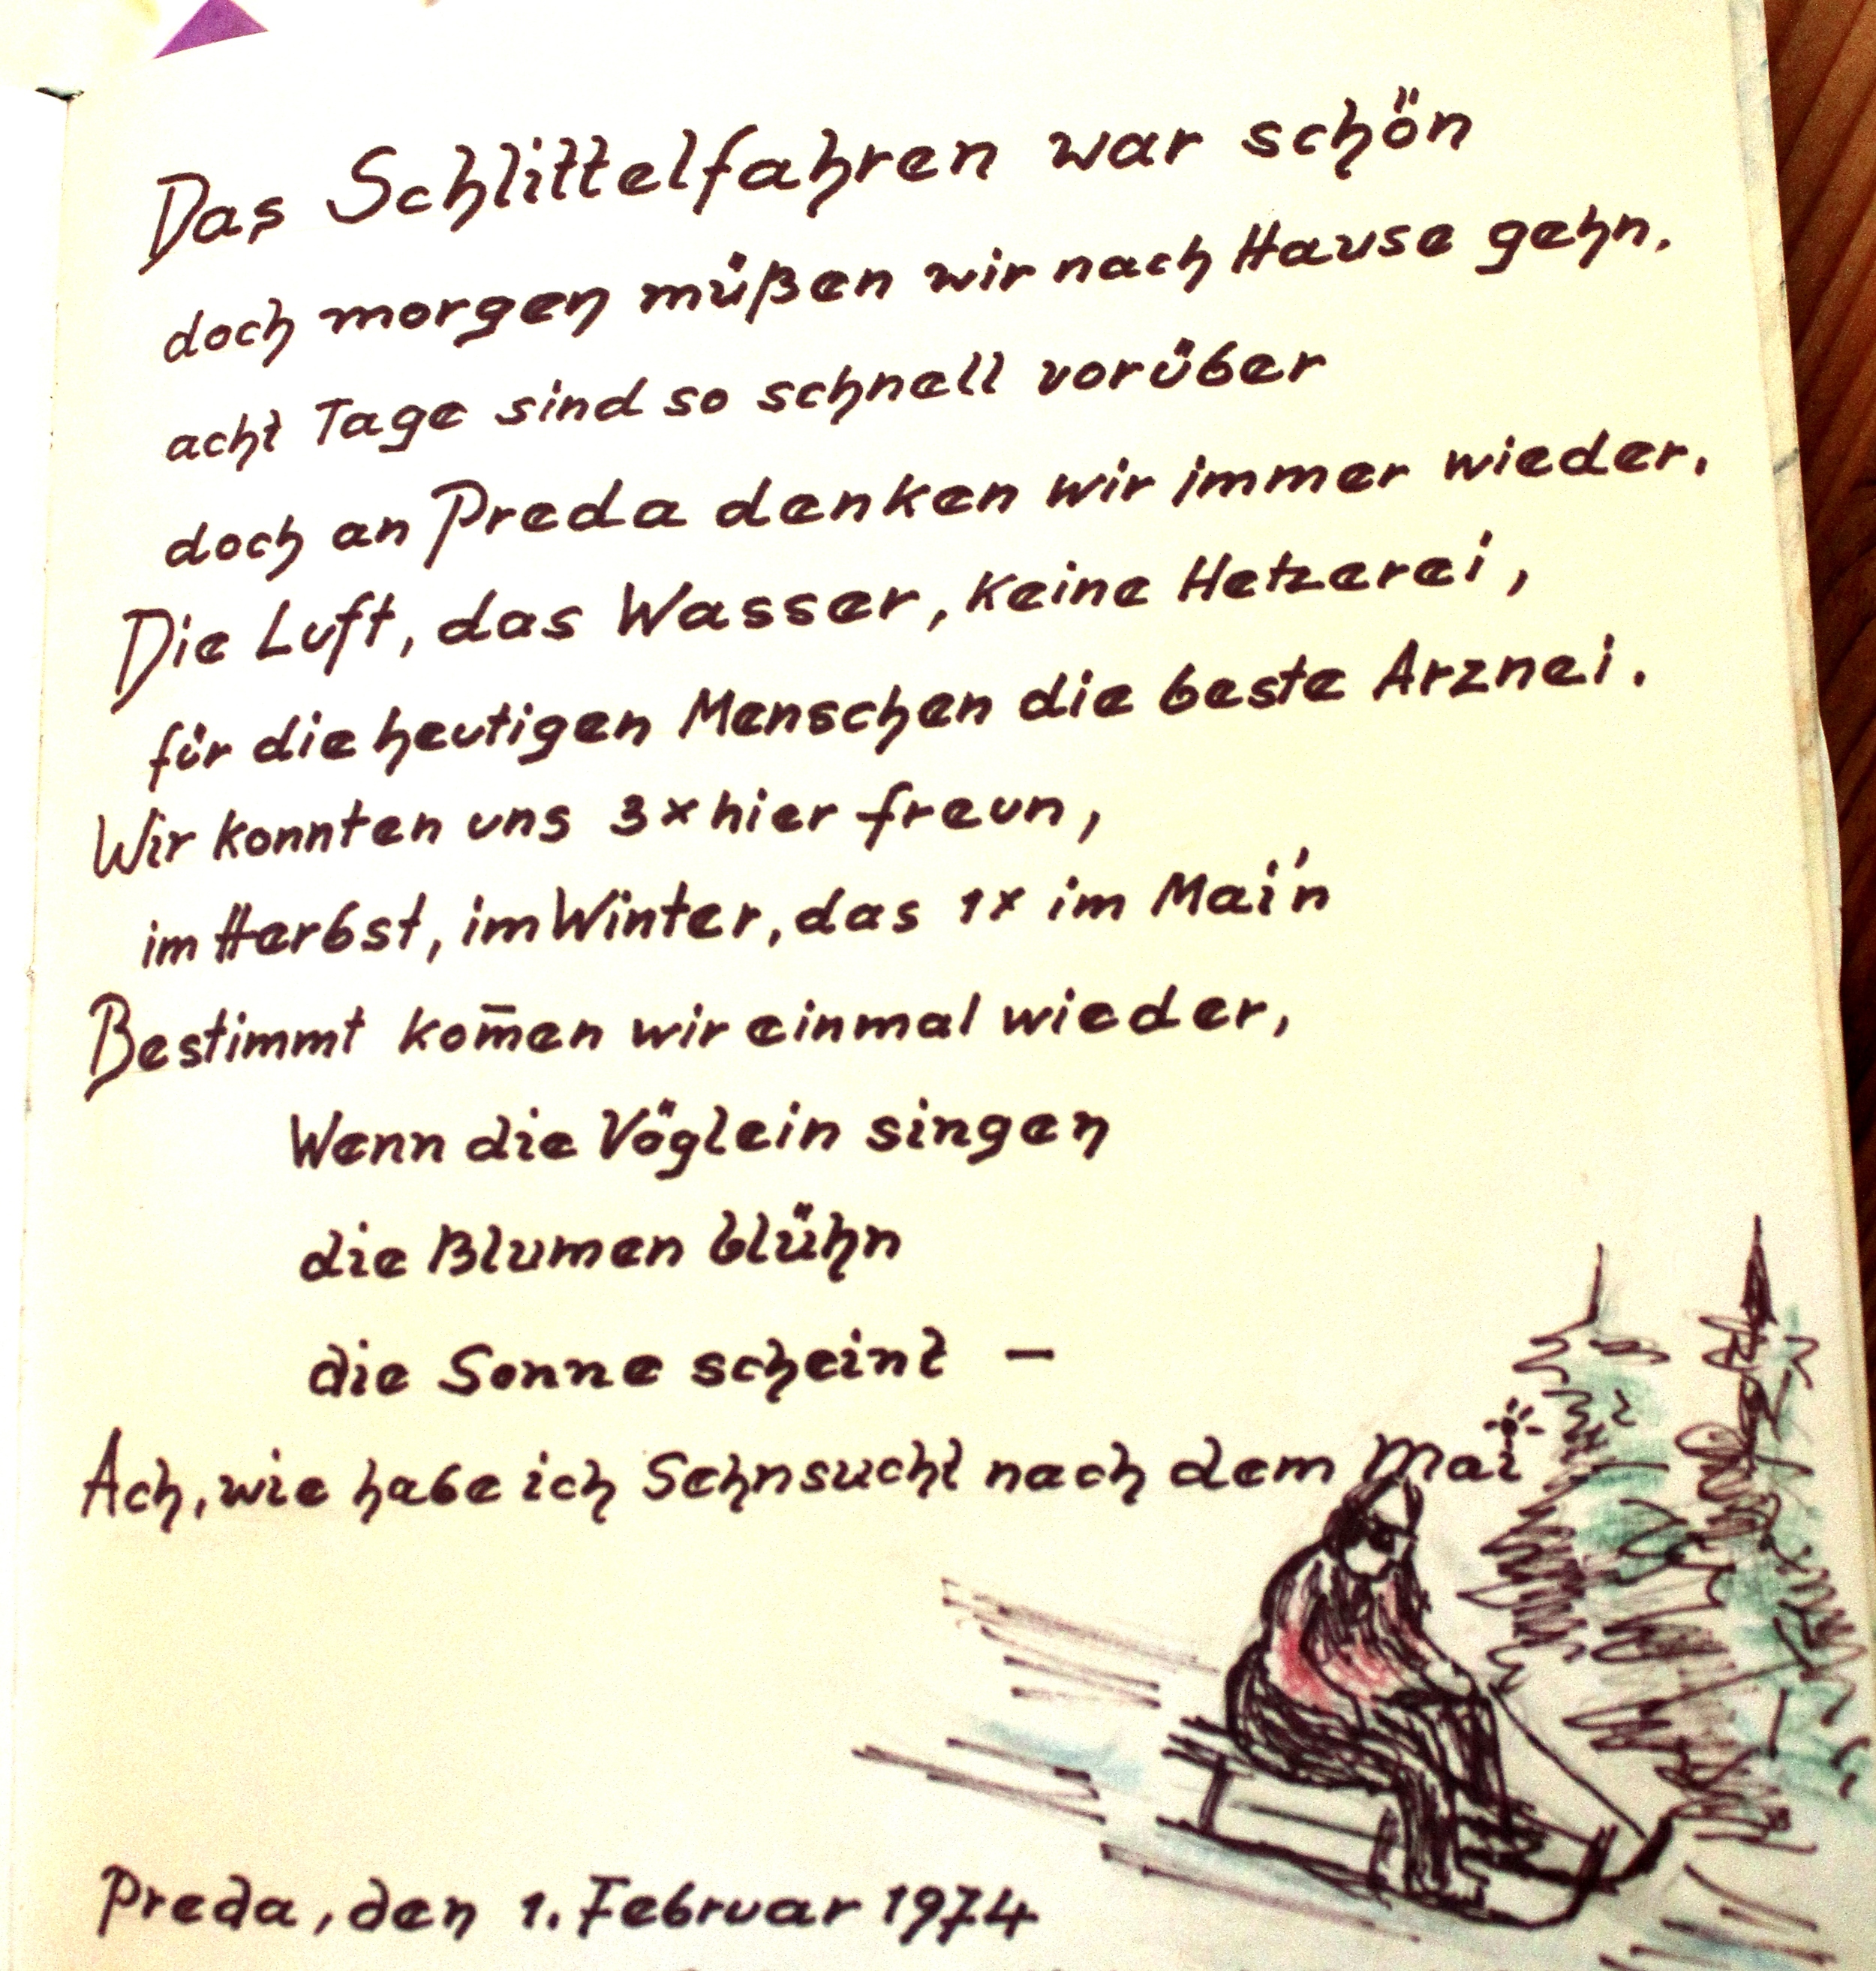 Das Schlittelfahren war schön
doch morgen müßen wir nach Hause gehn.
acht Tage sind so schnell vorüber
doch an Preda denken wir immer wieder.
Die Luft, das Wasser, keine Hetzerei,
für die heutigen Menschen die beste Arznei.
Wir konnten uns 3x hier freun,
im Herbst, im Winter, das 1x im Mai'n
Bestimmt kom̄en wir einmal wieder,
Wenn die Vöglein singen
die Blumen blühn
die Sonne scheint –
Ach, wie habe ich Sehnsucht nach dem Mai
Preda, den 1. Februar 1974